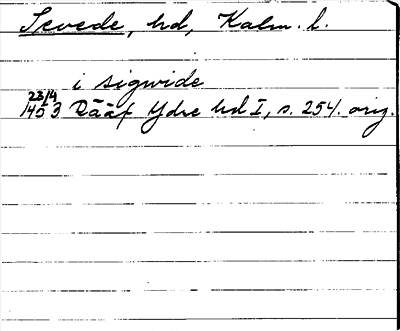 Sevede, hd, Kalm. l.
i sigwide
23/4
1453 Rääf Ydre hd I, s. 254. orig.